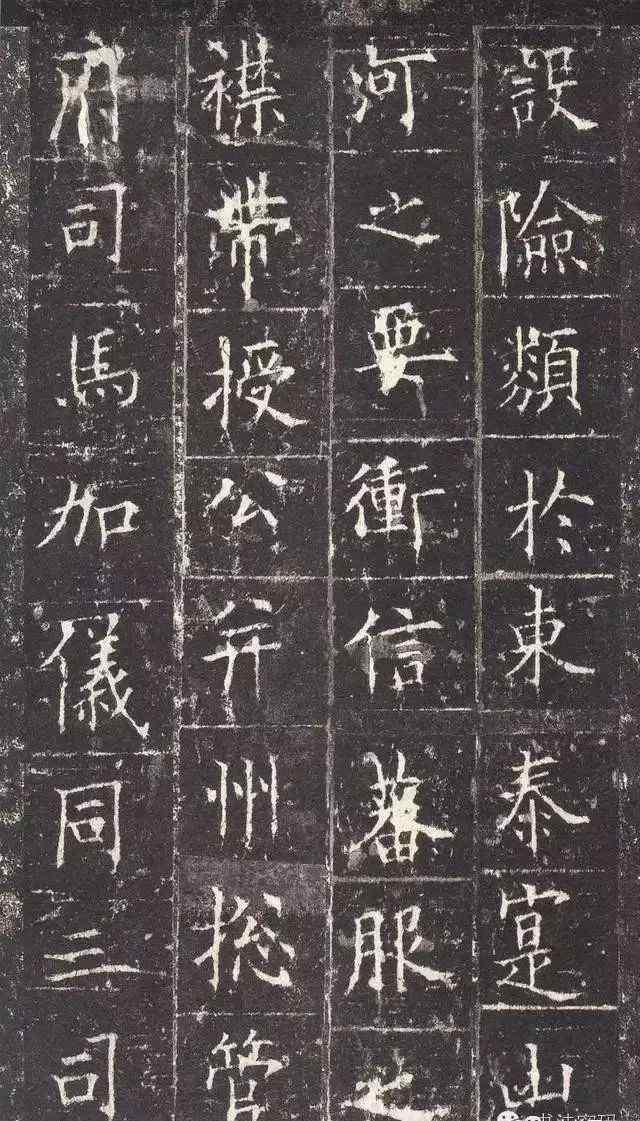 設險類於東泰寔山
河之要衝信蕃服之
襟帶授公并州揔管
府司馬加儀同三司
书法密码